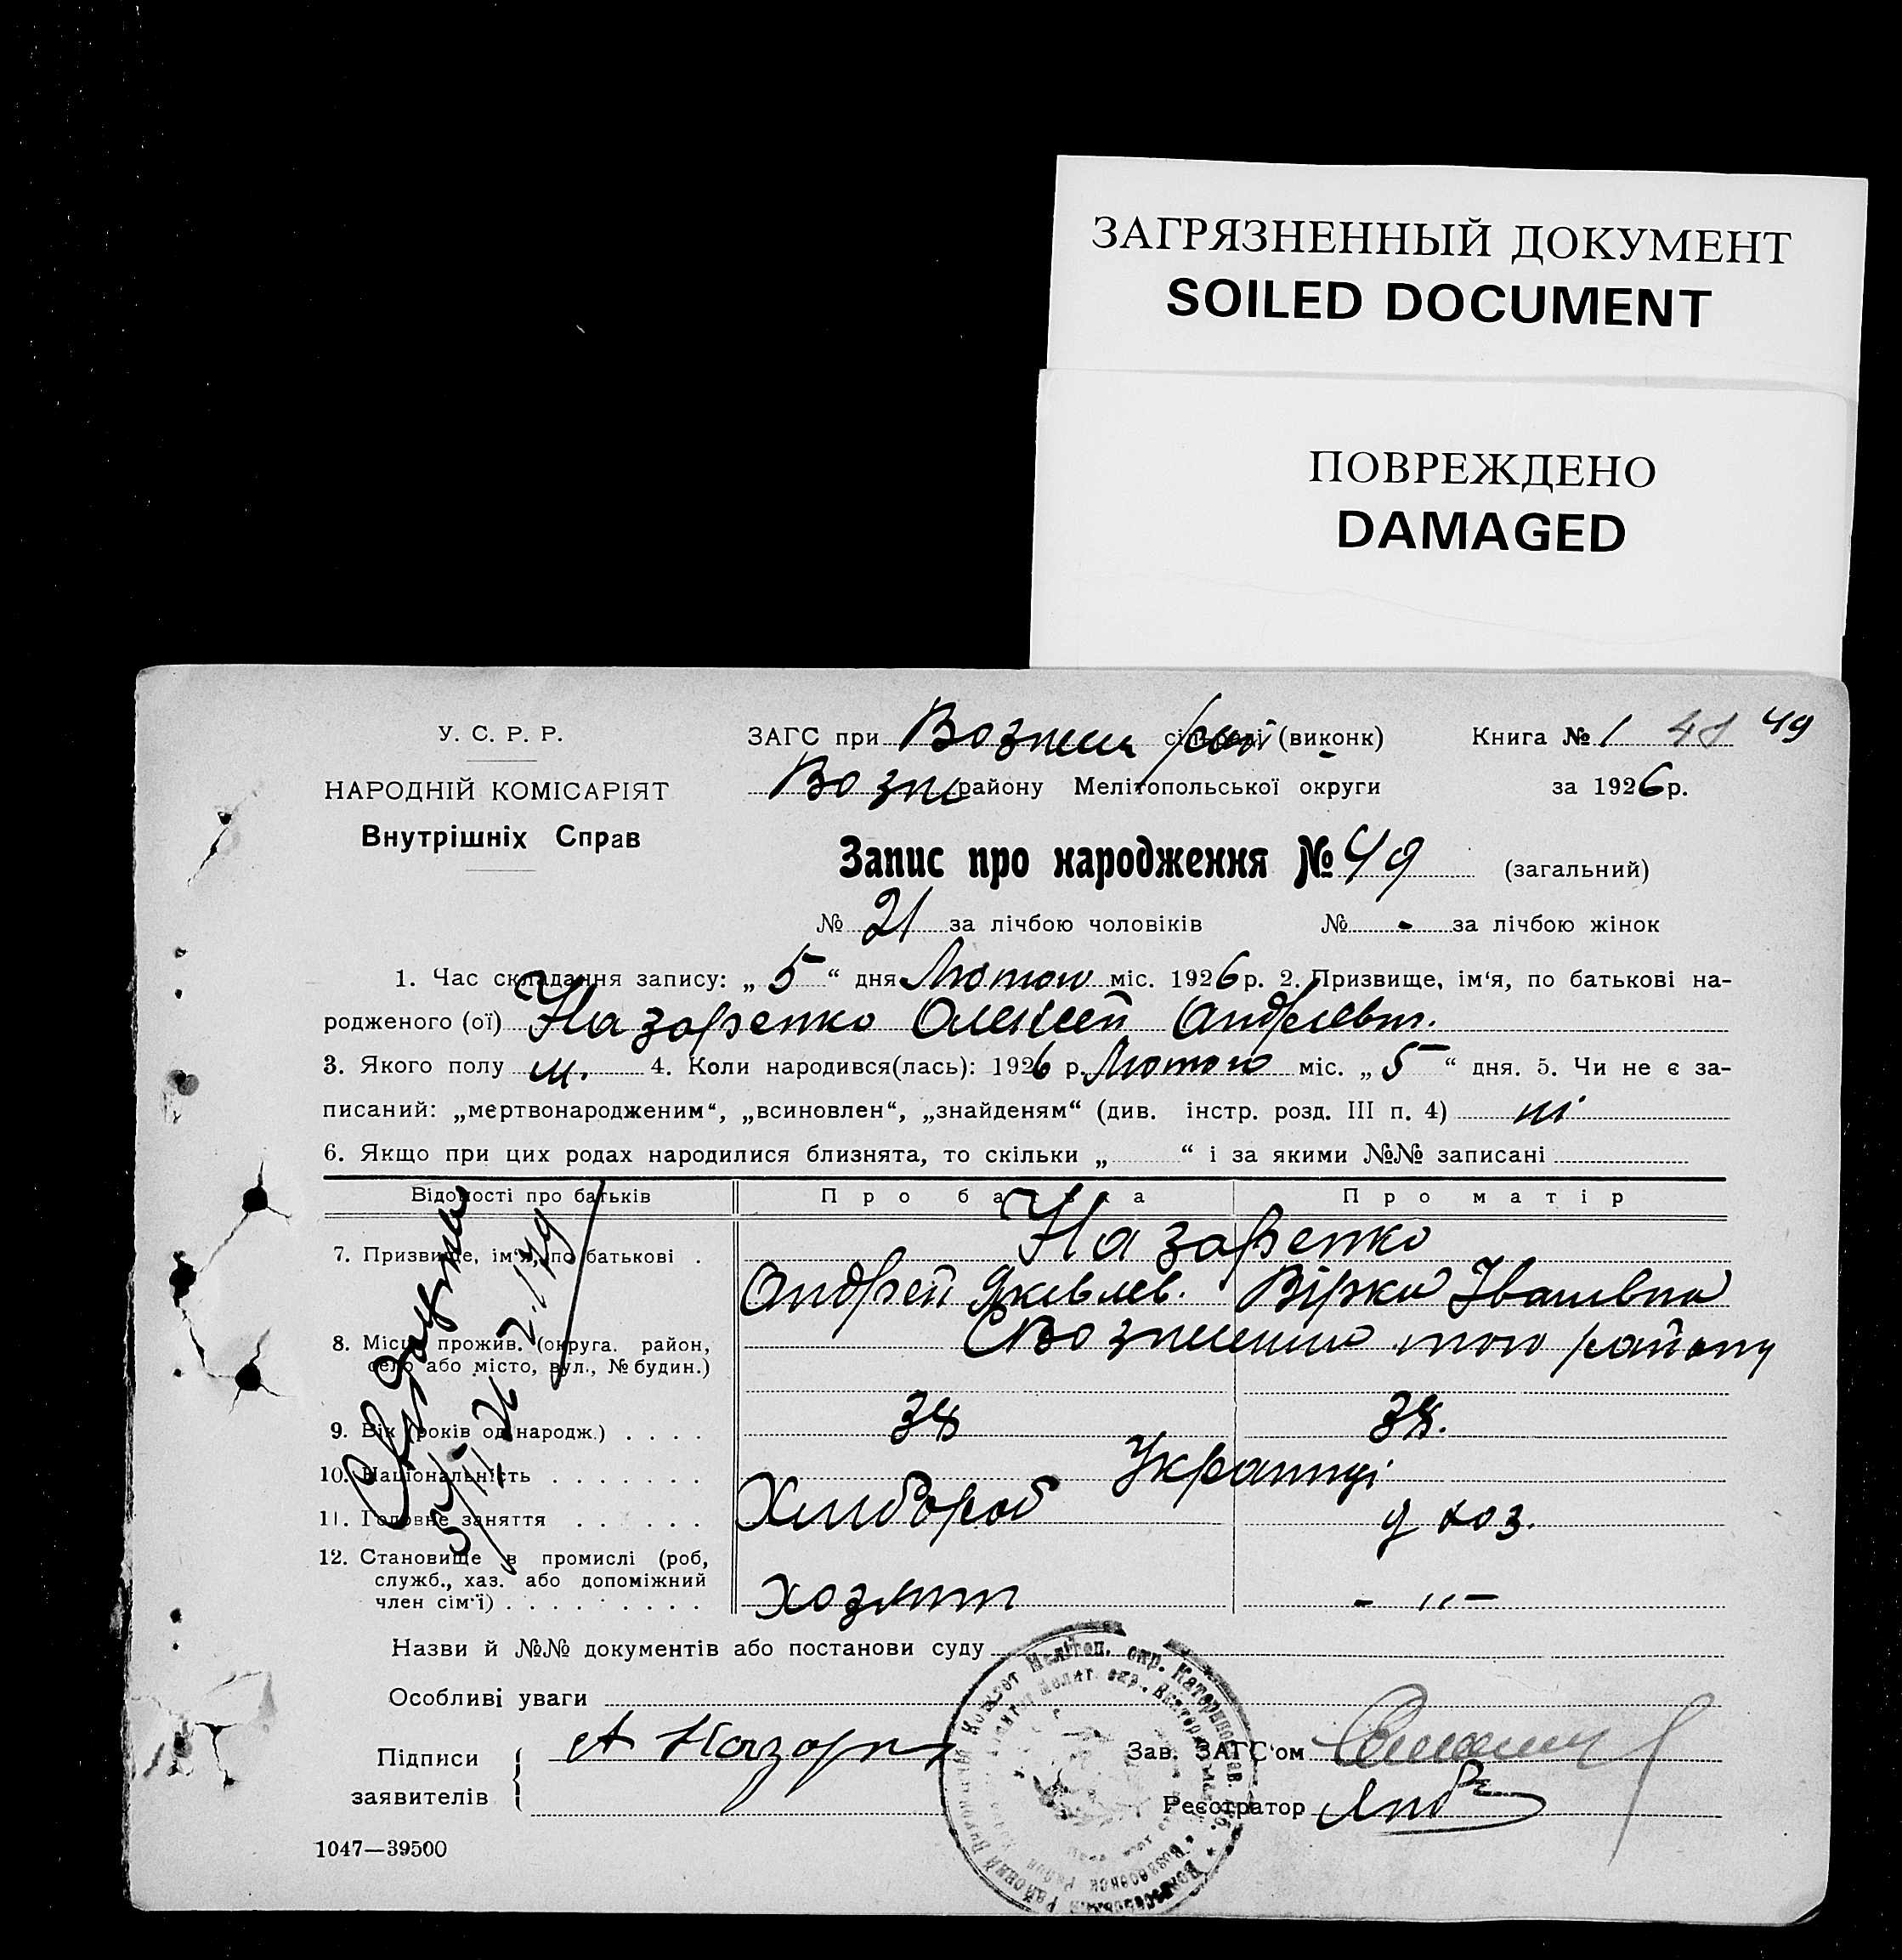 ЗАГРЯЗНЕННЫЙ ДОКУМЕНТ
SOILED DOCUMENT
ПОВРЕЖДЕНО
DAMAGED
У. С. Р. Р.
НАРОДНІЙ КОМІСАРІЯТ
Внутрішніх Справ
ЗАГС при Вознесен рай (виконк) Книга № 1 49
Возне району Мелітопольської округи за 1926 р.
Запис про народження № 49 (загальний)
№ 21 за лічбою чоловіків № - за лічбою жінок
1. Час складання запису: „ 5 “ дня Лютого міс. 1926 р. 2. Призвище, ім‘я, по батькові на-
родженого (ої) Назаренко Олексей Андреевич.
3. Якого полу м. 4. Коли народився(лась): 1926 р. Лютого міс. „ 5 “ дня. 5. Чи не є за-
писаний: „мертвонародженим“, „всиновлен“, „знайденям“ (див. інстр. розд. III п. 4) ні
6. Якщо при цих родах народилися близнята, то скільки „ “ і за якими №№ записані
Відомості про батьків Про батька Про матір
7. Призвище, ім‘я, по батькові . Назаренко
Андрей Яковлев. Вірка Іванівна
8. Місце прожив. (округа. район, С Вознесенко того району
село або місто, вул., № будин.)
9. Вік (років од народж.) . . . . 38 38.
10. Національність . . . . . . . Українці
11. Головне заняття . . . . . . Хлибороб д хоз.
12. Становище в промислі (роб,
служб., хаз. або допоміжний
член сім‘ї) . . . . . . . . . хозяин - „ -
Назви й №№ документів або постанови суду
Особливі уваги
Підписи
заявителів
А Назарен
Зав. ЗАГС‘ом
Реєстратор
1047—39500